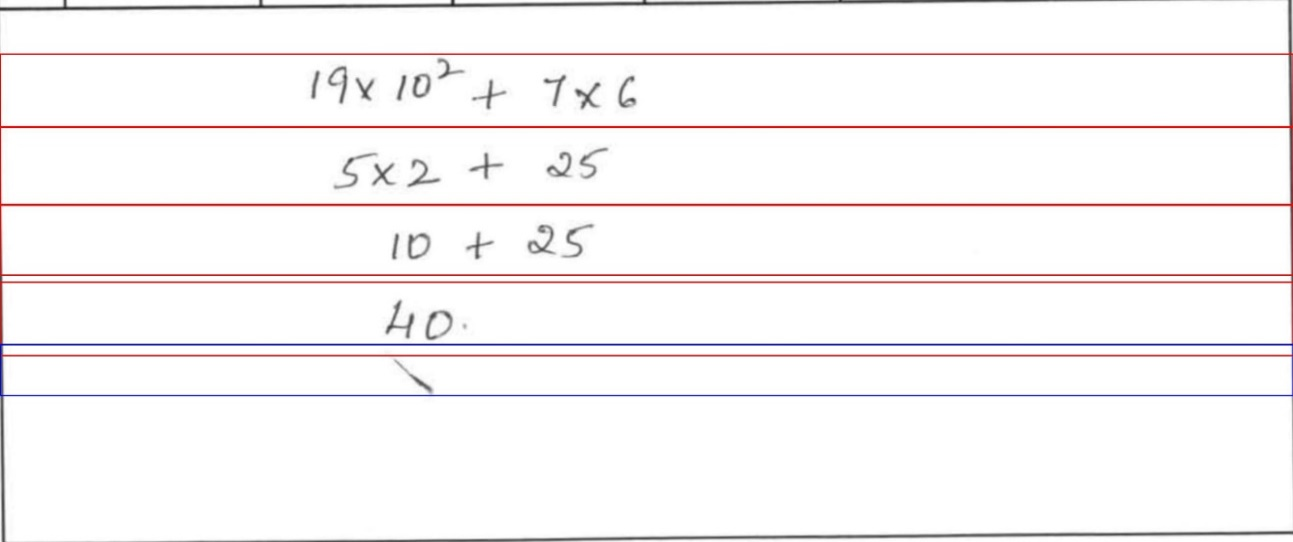 19 × 10² + 7 × 6
5 × 2 + 25
10 + 25
40.